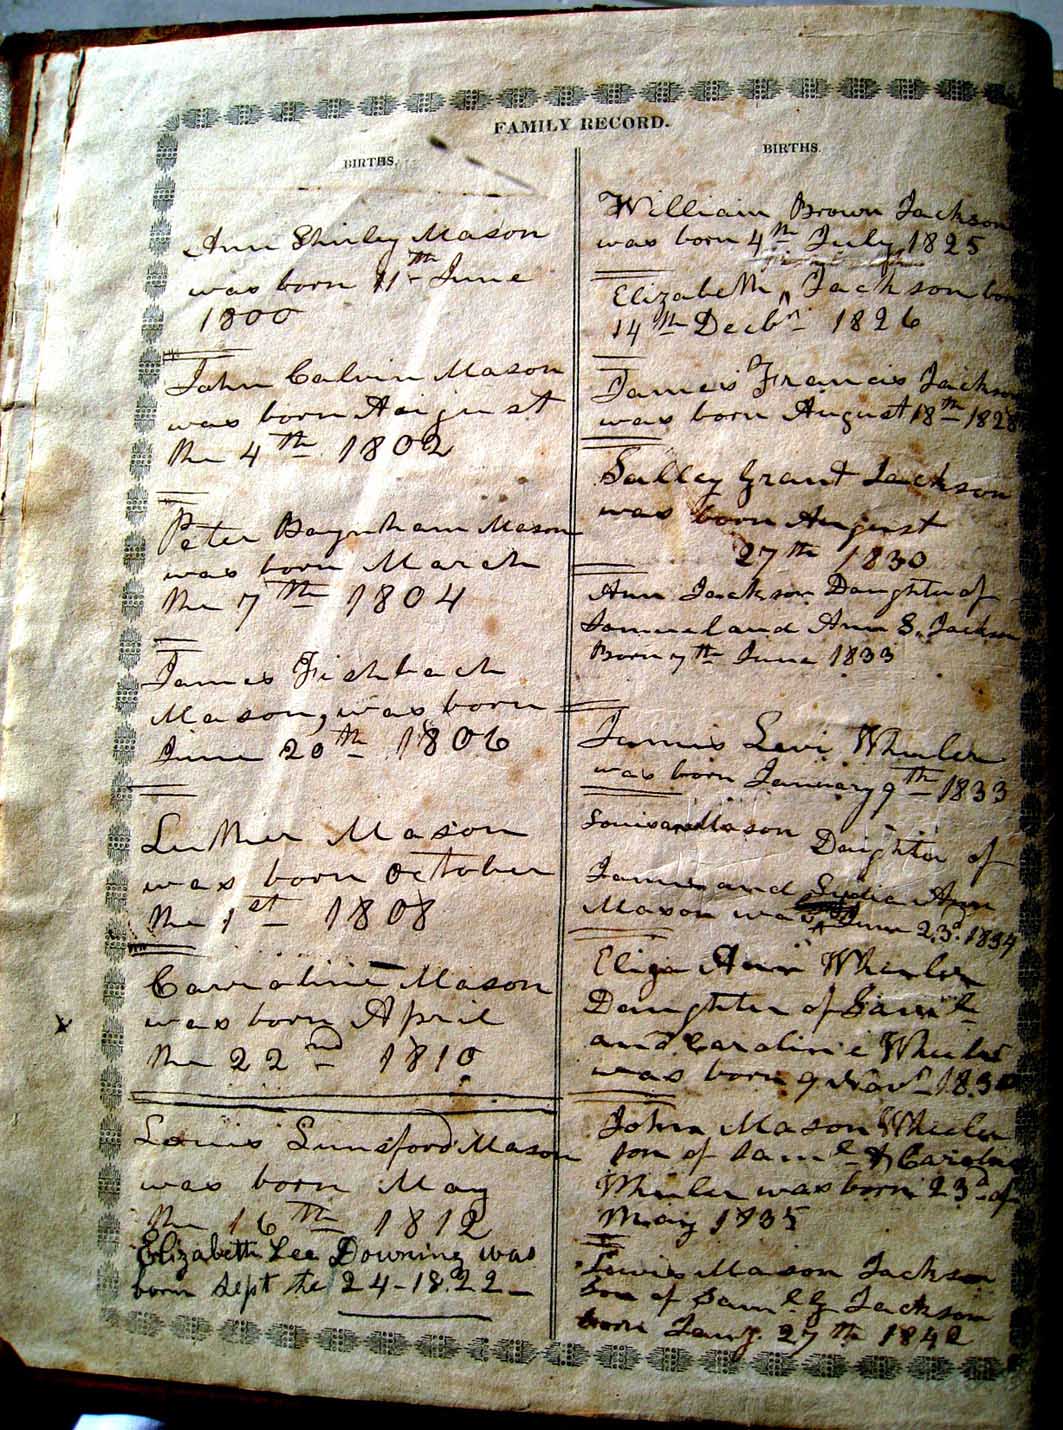 FAMILY RECORD.
BIRTHS.
Ann Shirley Mason
was born 11th June
1800
John Calvin Mason
was born August
the 4th 1802
Peter Baynham Mason
was born March
the 7th 1804
James Fishback
Mason, was born
June 20th 1806
Luther Mason
was born October
the 1st 1808
Carroline Mason
was born April
the 22nd 1810
Louis Lunsford Mason
was born May
the 16th 1812
Elizabeth Lee Downing was
born Sept the 24-1822-
BIRTHS.
William Brown Jackson
was born 4th July 1825
Elizabeth Jackson born
14th Decbr 1826
James Francis Jackson
was born August 18th 1828
Salley Grant Jackson
was born August
27th 1830
Ann Jackson Daughter of
Samuel and Ann S. Jackson
Born 7th June 1833
James Levi Wheeler
was born January 9th 1833
Louisa Mason
Daughter of
James and Lydia Ann
Mason was June 23d. 1834
Eliza Ann Wheeler
Daughter of Saml
and Caroline Wheeler
was born 9 Novr
John Mason Wheeler
son of Saml & Caroline
Wheeler was born 23d of
May 1835
Lewis Mason Jackson
Son of Saml G Jackson
born Jany. 27th 1842